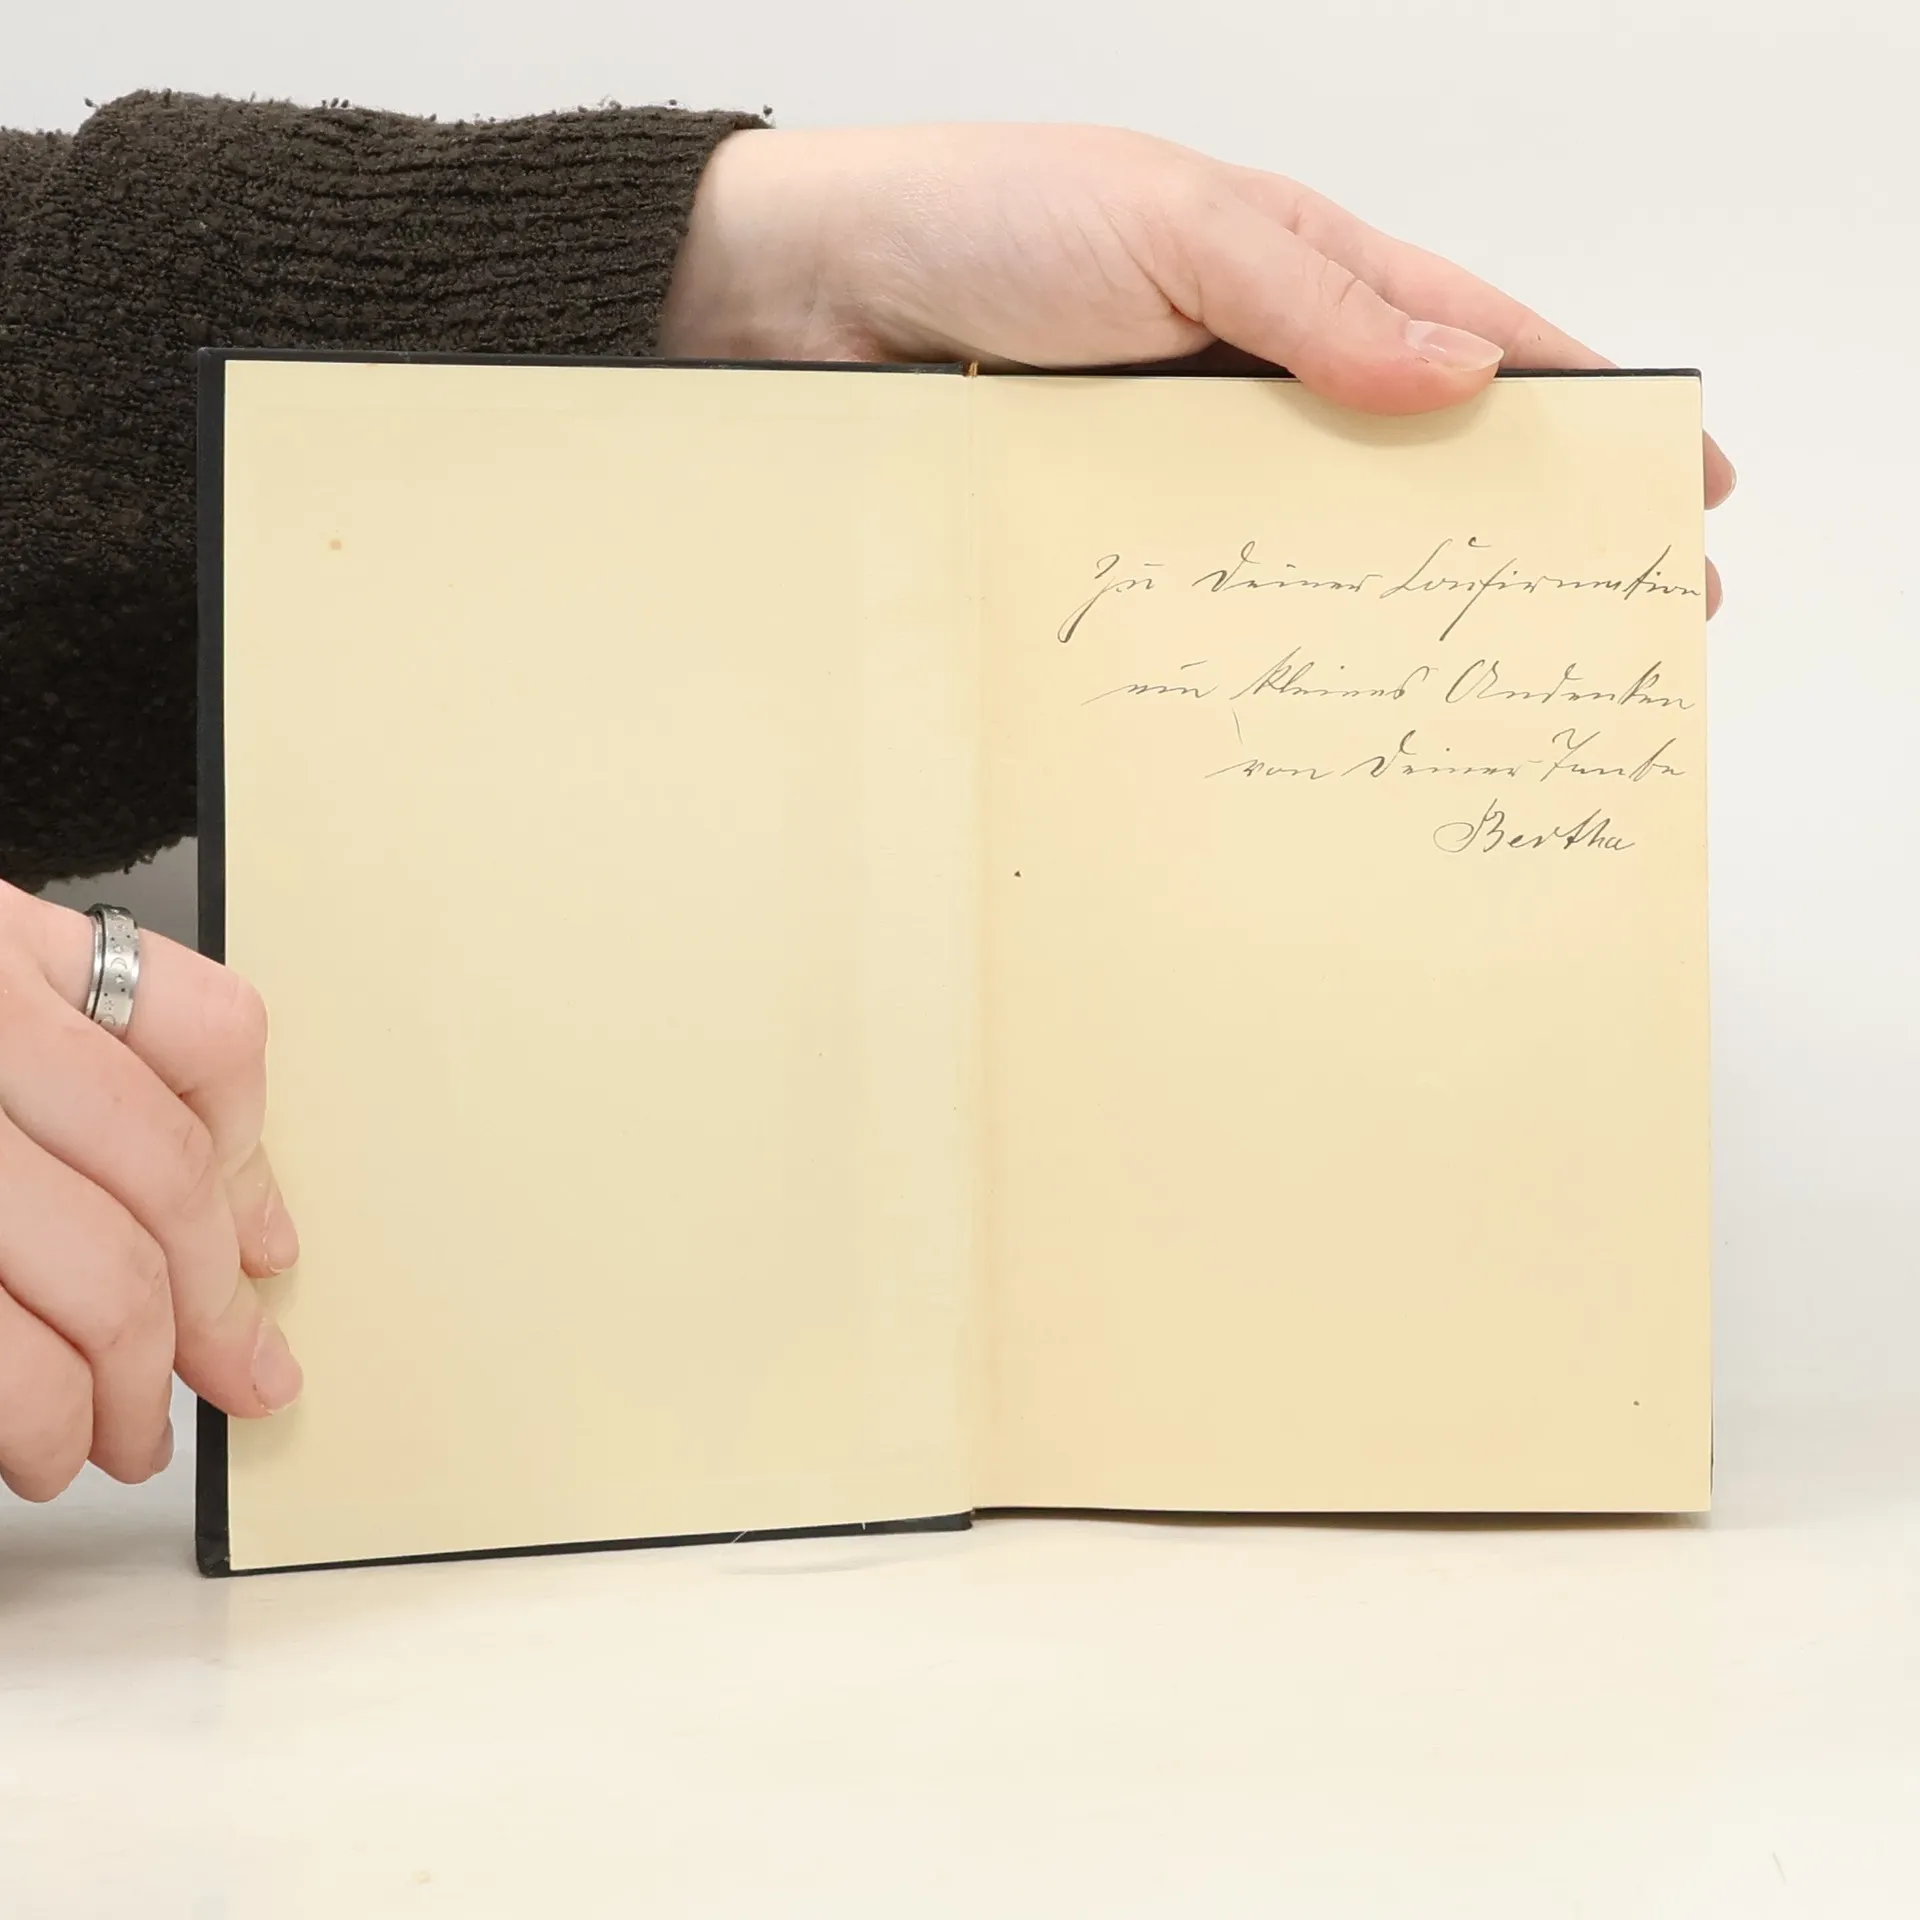 Zu Deiner Confirmation
ein kleines Andenken
von Deiner Tante
Bertha